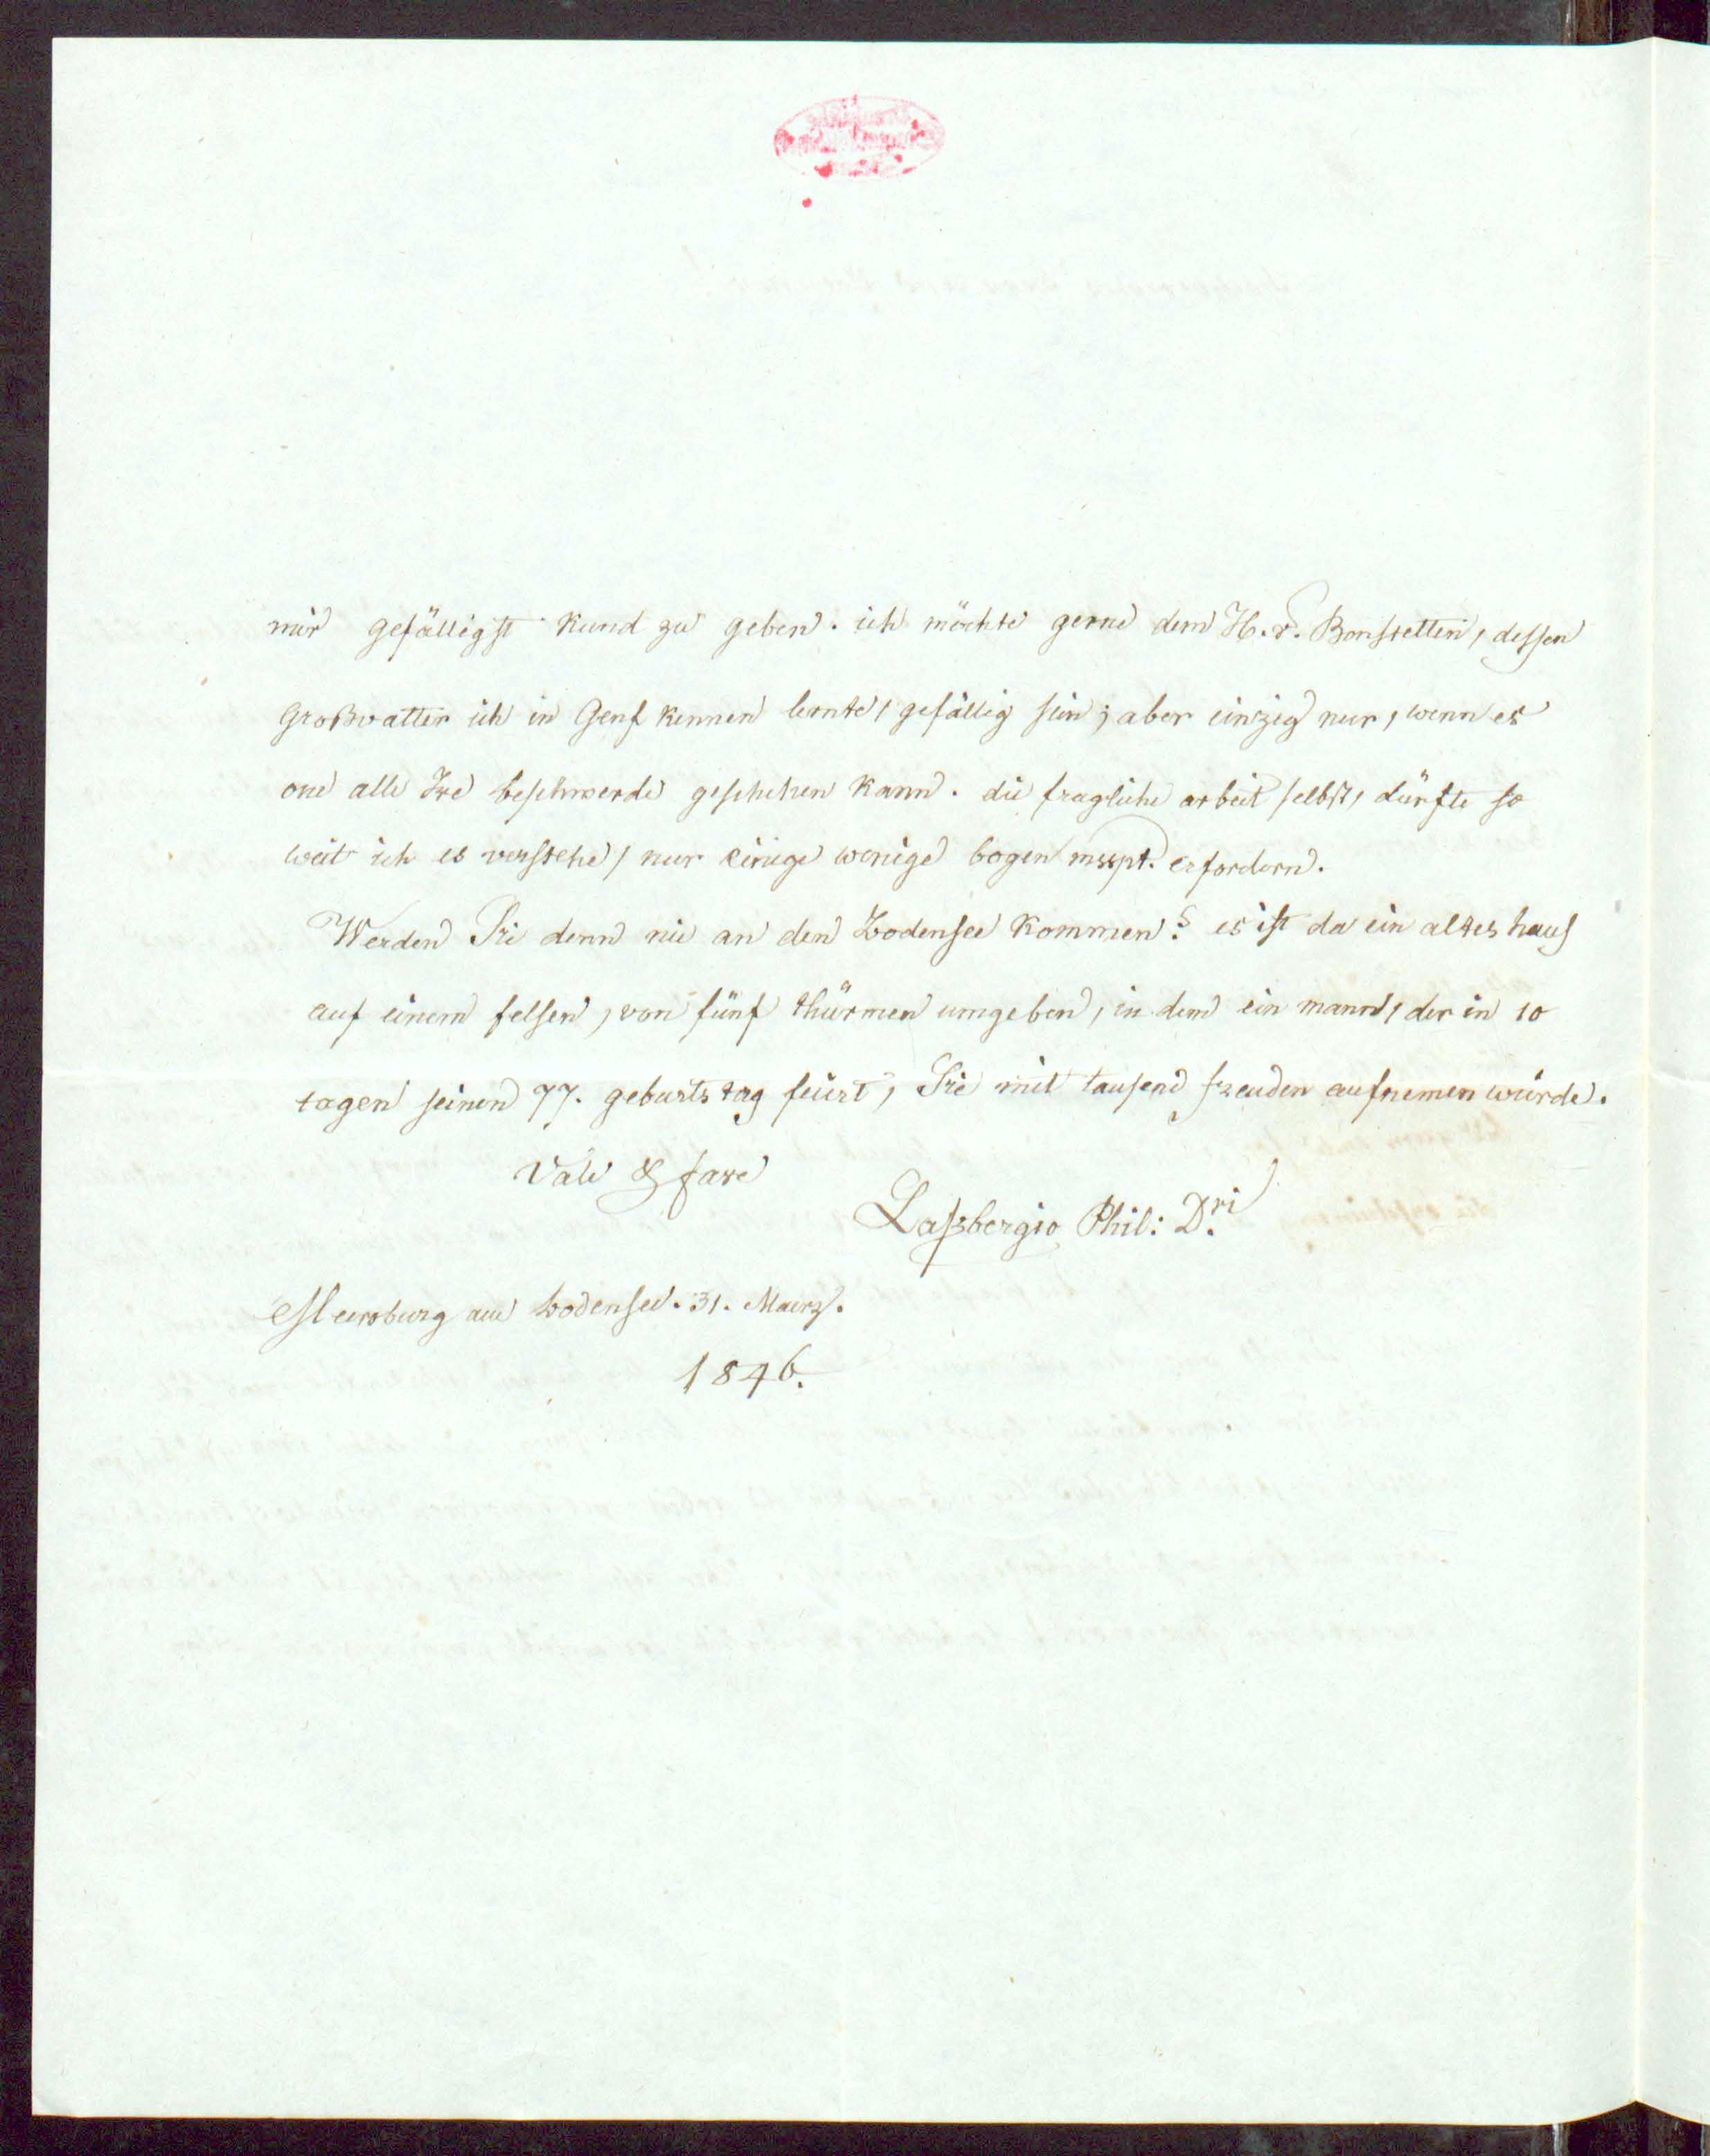 mir gefälligst kund zu geben. ich möchte gerne dem H. v. Bonstetten, dessen
Großvatter ich in Genf kennen lernte, gefällig sein; aber einzig nur, wenn es
one alle Ire beschwerde geschehen kann. die fragliche arbeit selbst, dürfte so
weit ich es verstehe, nur einige wenige bogen mscpt. erfordern.
Werden Sie denn nie an den Bodensee kommen? es ist da ein altes haus
auf einem felsen, von fünf thürmen umgeben, in dem ein mann, der in 10
tagen seinen 77. geburtstag feiert, Sie mit tausend freuden aufnemen würde.
Vale & fave
Laßbergio Phil: D.ri
Meersburg am bodensee. 31. Maerz.
1846.